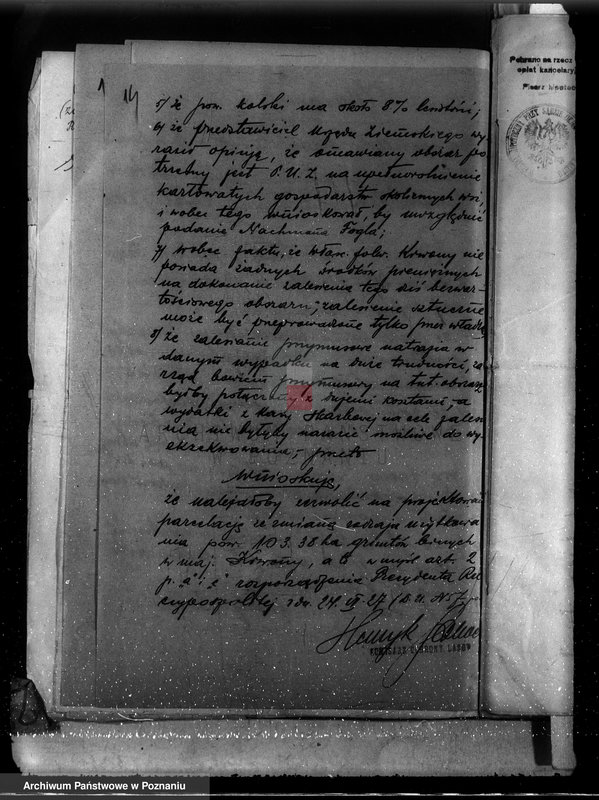 14
5/ że pow. kolski ma około 8% lesistości;
6/ że przedstawiciel Urzędu Ziemskiego wy
raził opinję, że omawiany obszar po
trzebny jest P.U.Z. na upełnorolnienie
karłowatych gospodarstw okolicznych wsi,
i wobec tego wnioskował, by uwzględnić
podanie Nachmana Fogla;
7/ wobec faktu, że właśc. folw. Krwony nie
posiada żadnych środków pieniężnych
na dokonanie zalesienia tego dziś bezwar-
tościowego obszaru; zalesienie sztuczne
może być przeprowadzone tylko przez władzę
8/ że zalesianie przymusowe natrafia w
danym wypadku na duże trudności, za
rząd bowiem przymusowy na tut. obszar
byłby połączony z dużemi kosztami, a
wydatki z kasy Skarbowej na cele zalesie
nia nie byłyby narazie możliwe do wy
ekzekwowania, – przeto
wnioskuję,
że należałoby zezwolić na projektowan
parcelację ze zmianą rodzaju użytkowa
nia pow. 103.38 ha gruntów leśnych
w maj. Krwony, a to w myśl art. 2
rozporządzenia Prezydenta Rze
czypospolitej z dn. 24. VI 27 (D.U. № 7
Henryk
KOMISARZ OCHRONY LASÓW
Pobrano na rzecz
opłat kancelary
Pisarz hipotec
Archiwum Państwowe w Poznaniu